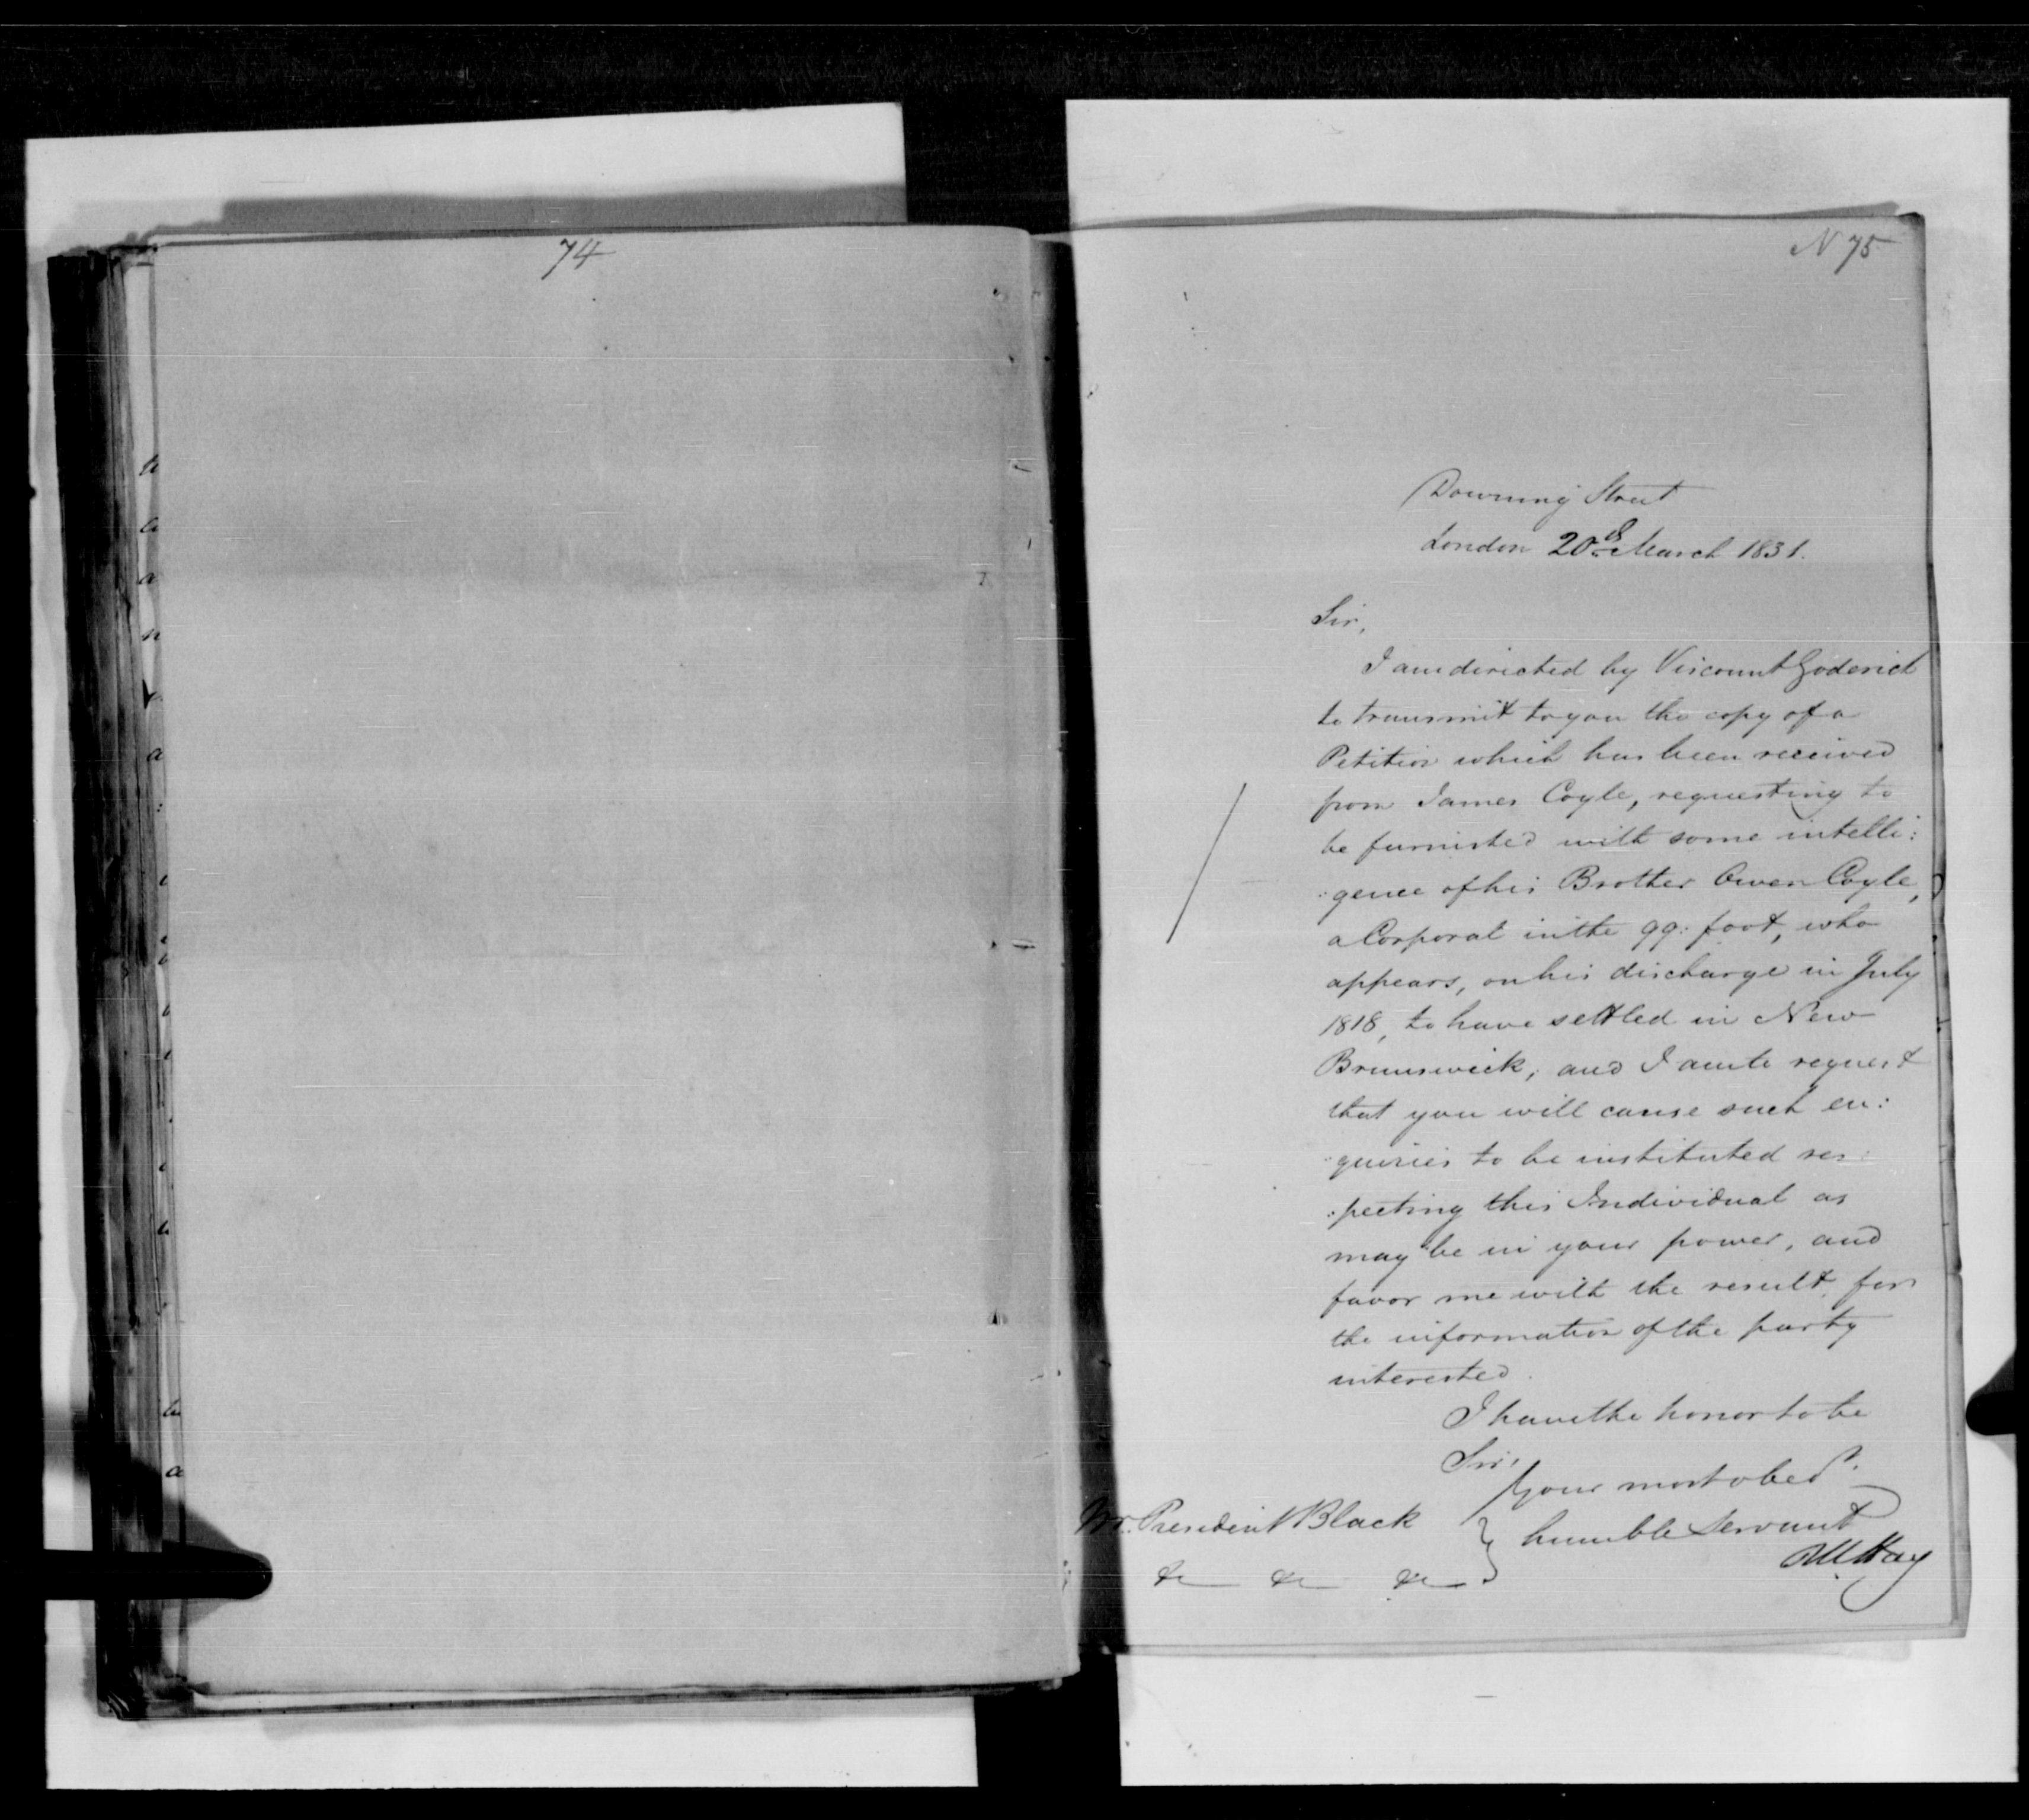 74
N 75
Downing Street
London 20th March 1831.
Sir,
I am directed by Viscount Goderich
to transmit to you the copy of a
Petition which has been received
from James Coyle, requesting to
be furnished with some intelli:
:gence of his Brother Owen Coyle,
a Corporal in the 99: foot, who
appears, on his discharge in July
1818, to have settled in New
Brunswick; and I am to request
that you will cause such en:
:quiries to be instituted res:
:pecting this Individual as
may be in your power, and
favor me with the result, for
the information of the party
interested.
I have the honor to be
Sir,
Your most obedt.
humble Servant
RW Hay
Mr. President Black
&c &c &c